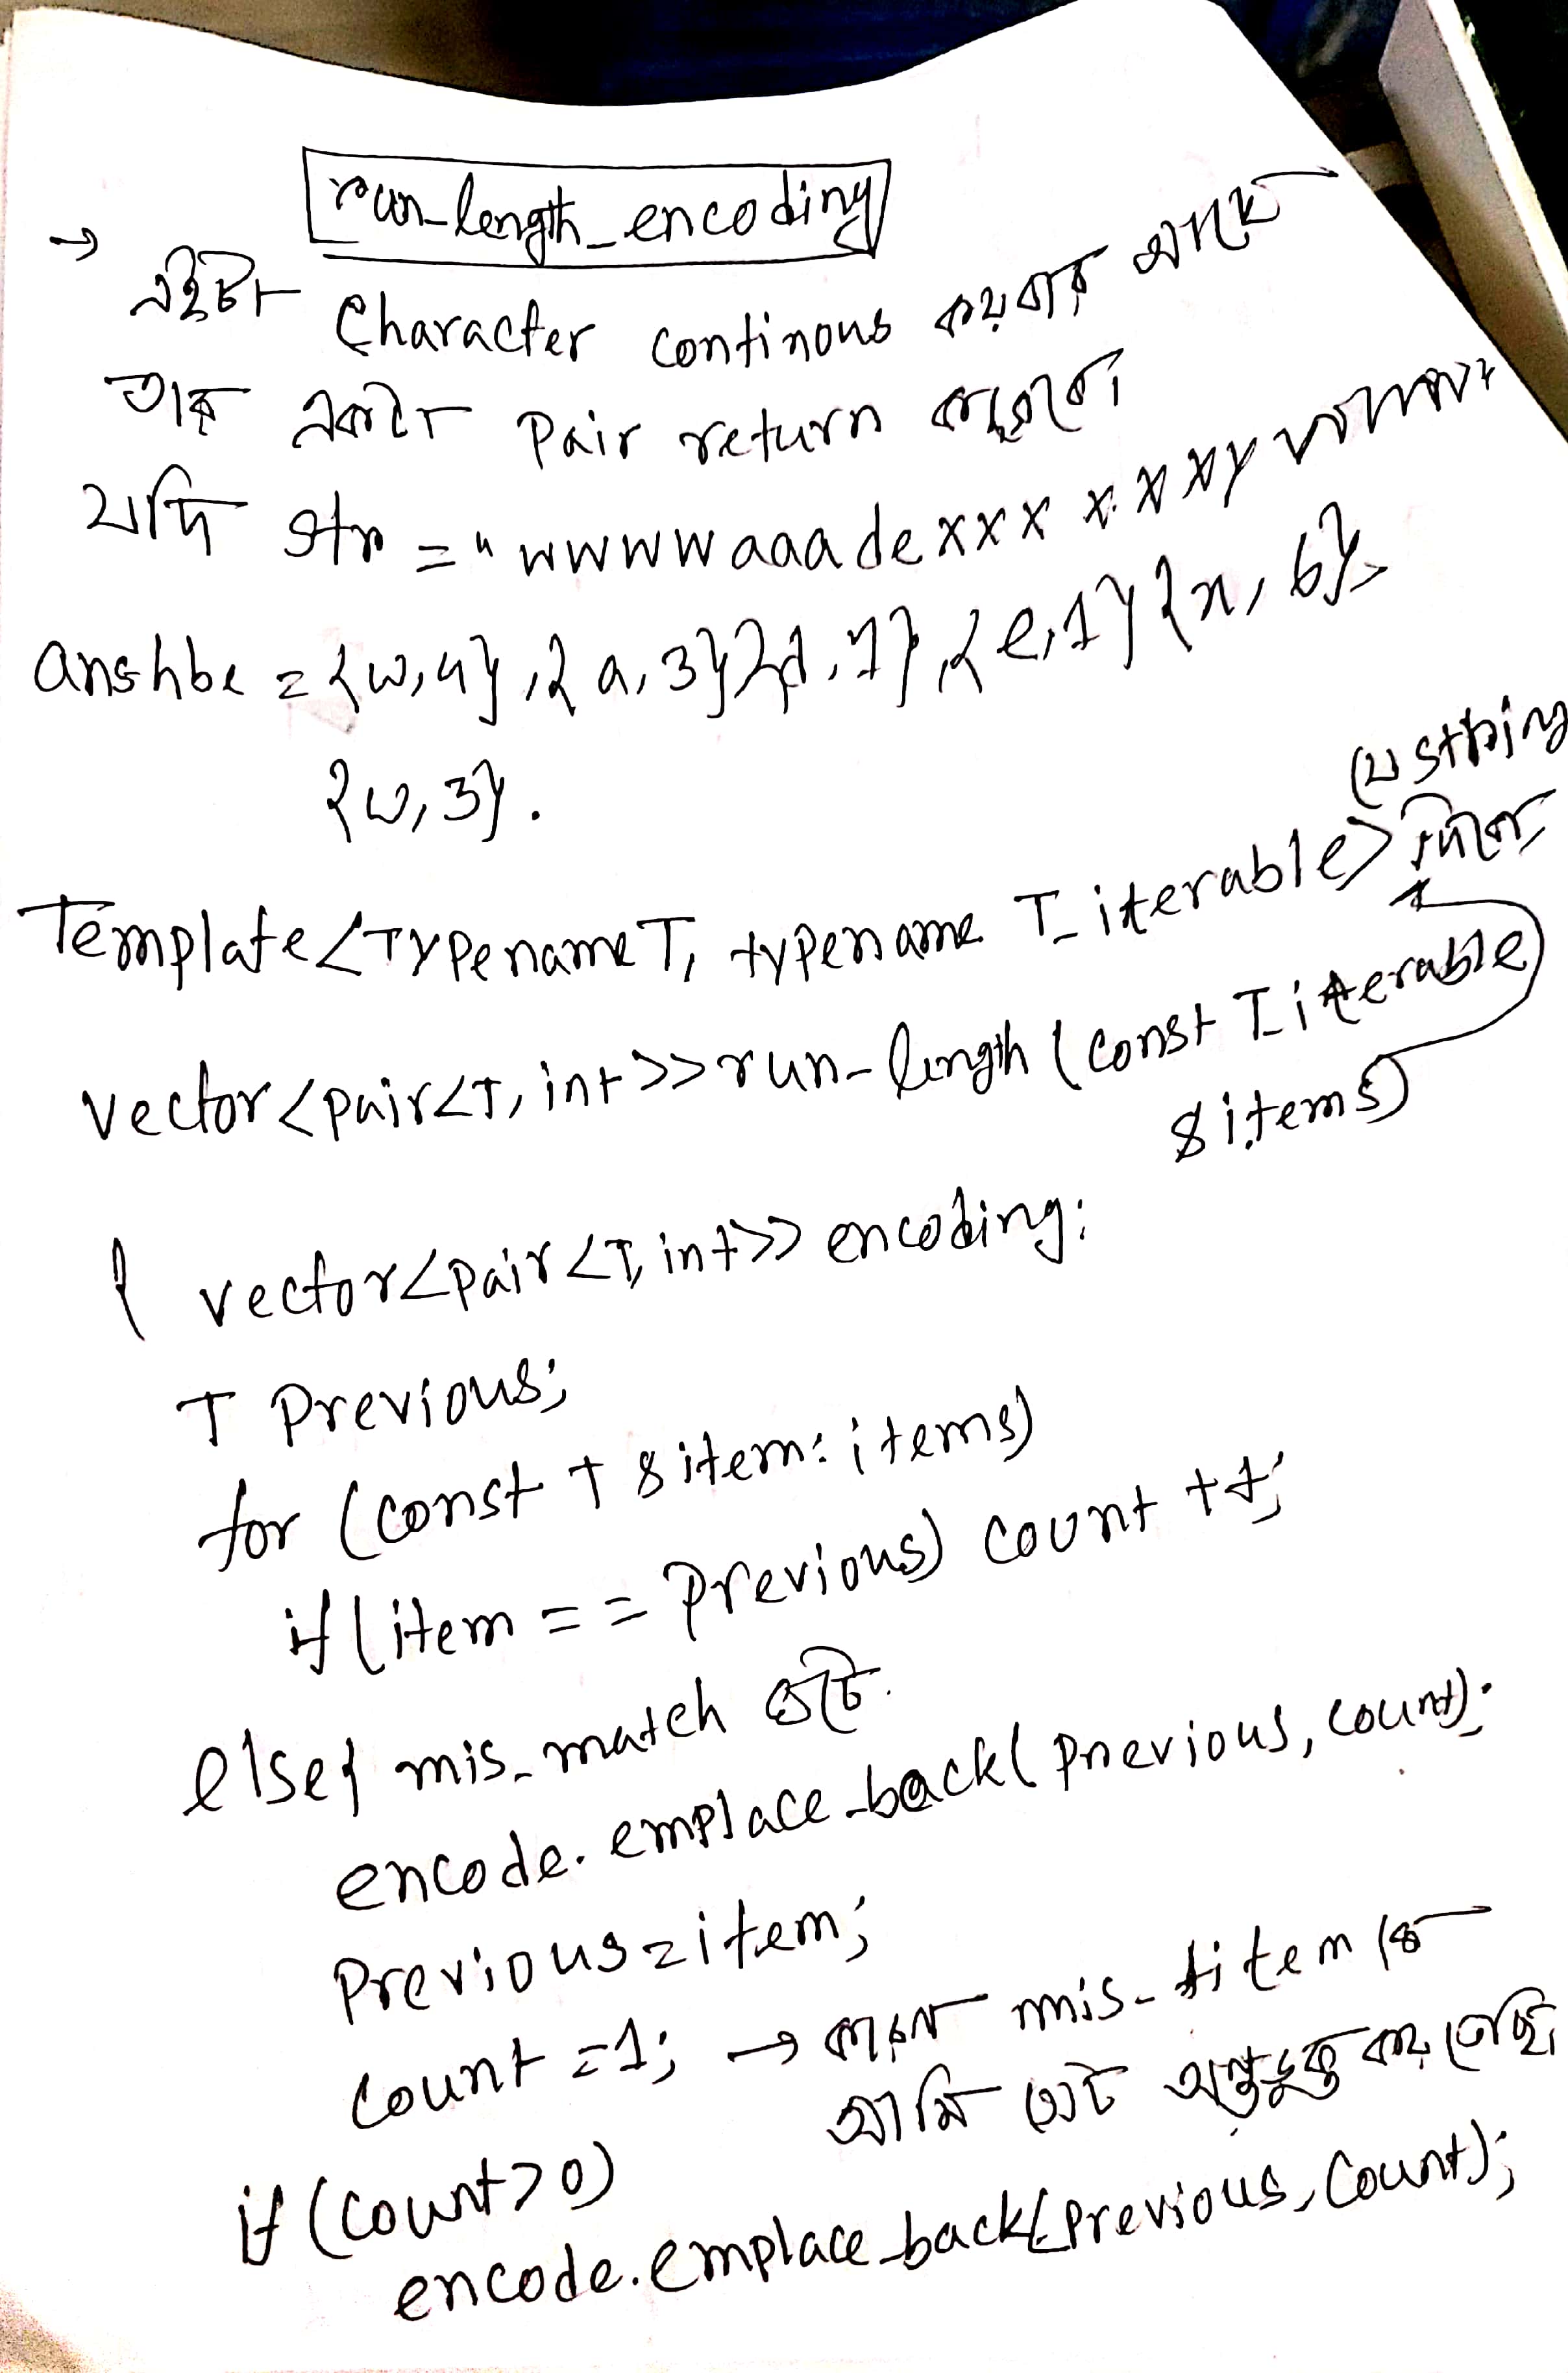 run_length_encoding
→ এইটা Character continous কয়বার আছে
তার একটা Pair return করবে।
যদি str = "wwwwaaadexxxxxx
anshbe = {w,4},{a,3}{d,1},{e,1}{x,6},
{w,3}.
(যে string
দিবে
Template<Typename T, typename T_iterable>
vector<pair<T, int>> run_length (const T_iterable
&items)
{ vector<pair<T, int>> encoding;
T Previous;
for (const T &item: items)
if (item == previous) count ++;
else{ mis_match
encode.emplace_back(previous, count);
Previous=item;
count =1; → কারন mis-item কে
আমি অন্তর্ভুক্ত করে
if (count>0)
encode.emplace_back(previous, count);